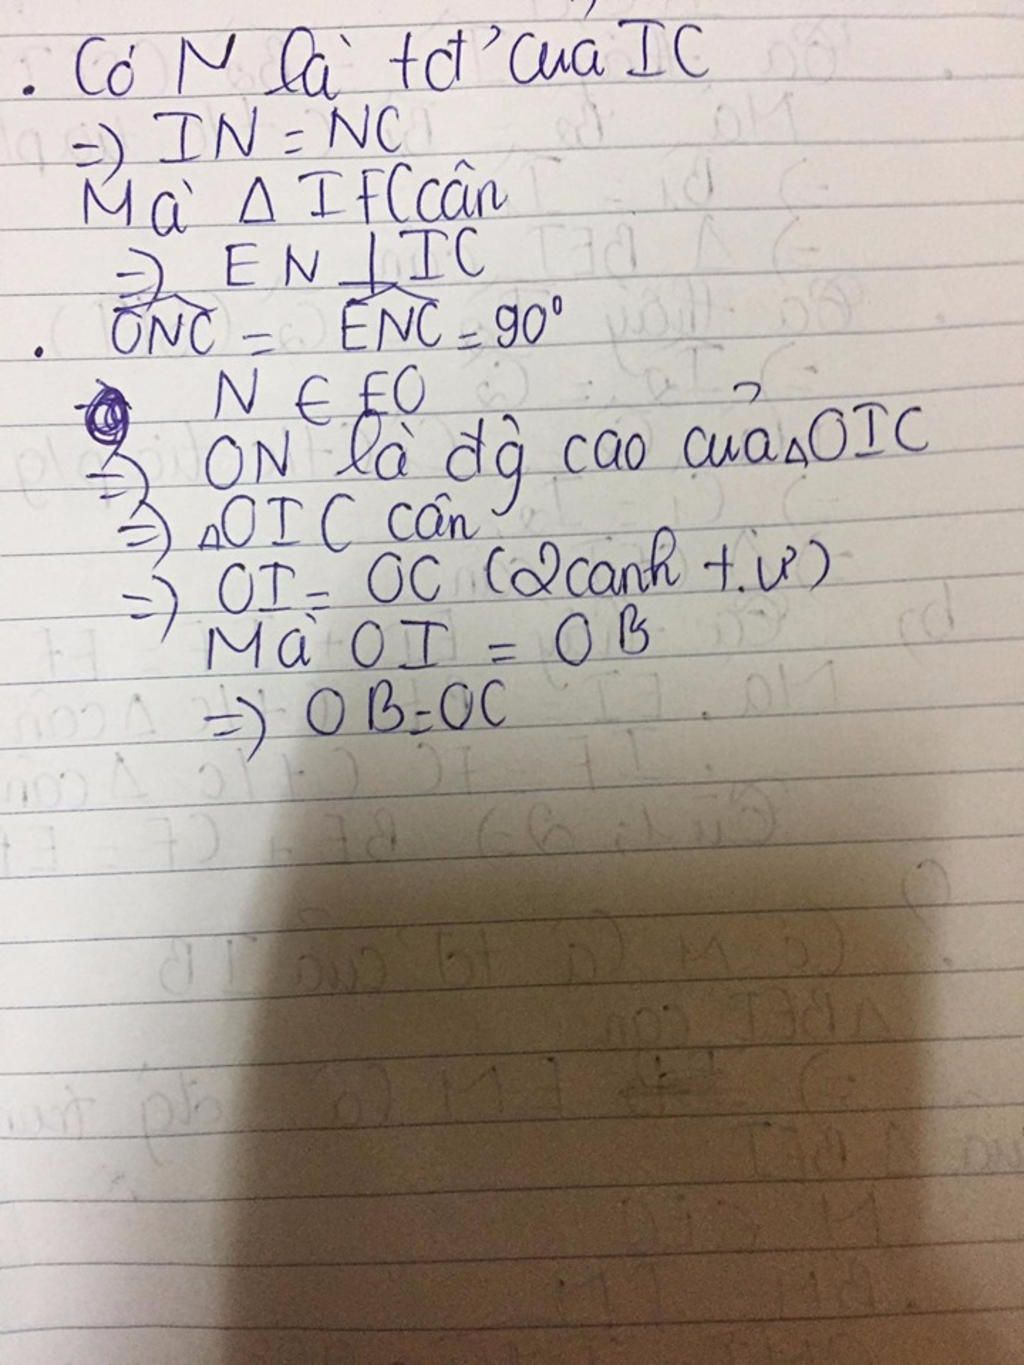 . Có N là tđ' của IC
=> IN = NC
Mà Δ IFC cân
=> EN ⊥ IC
. ONC = ENC = 90°
N ∈ FO
=> ON là đg cao của ΔOIC
=> ΔOIC cân
=> OI = OC (2 canh t.ư)
Mà OI = OB
=> OB = OC